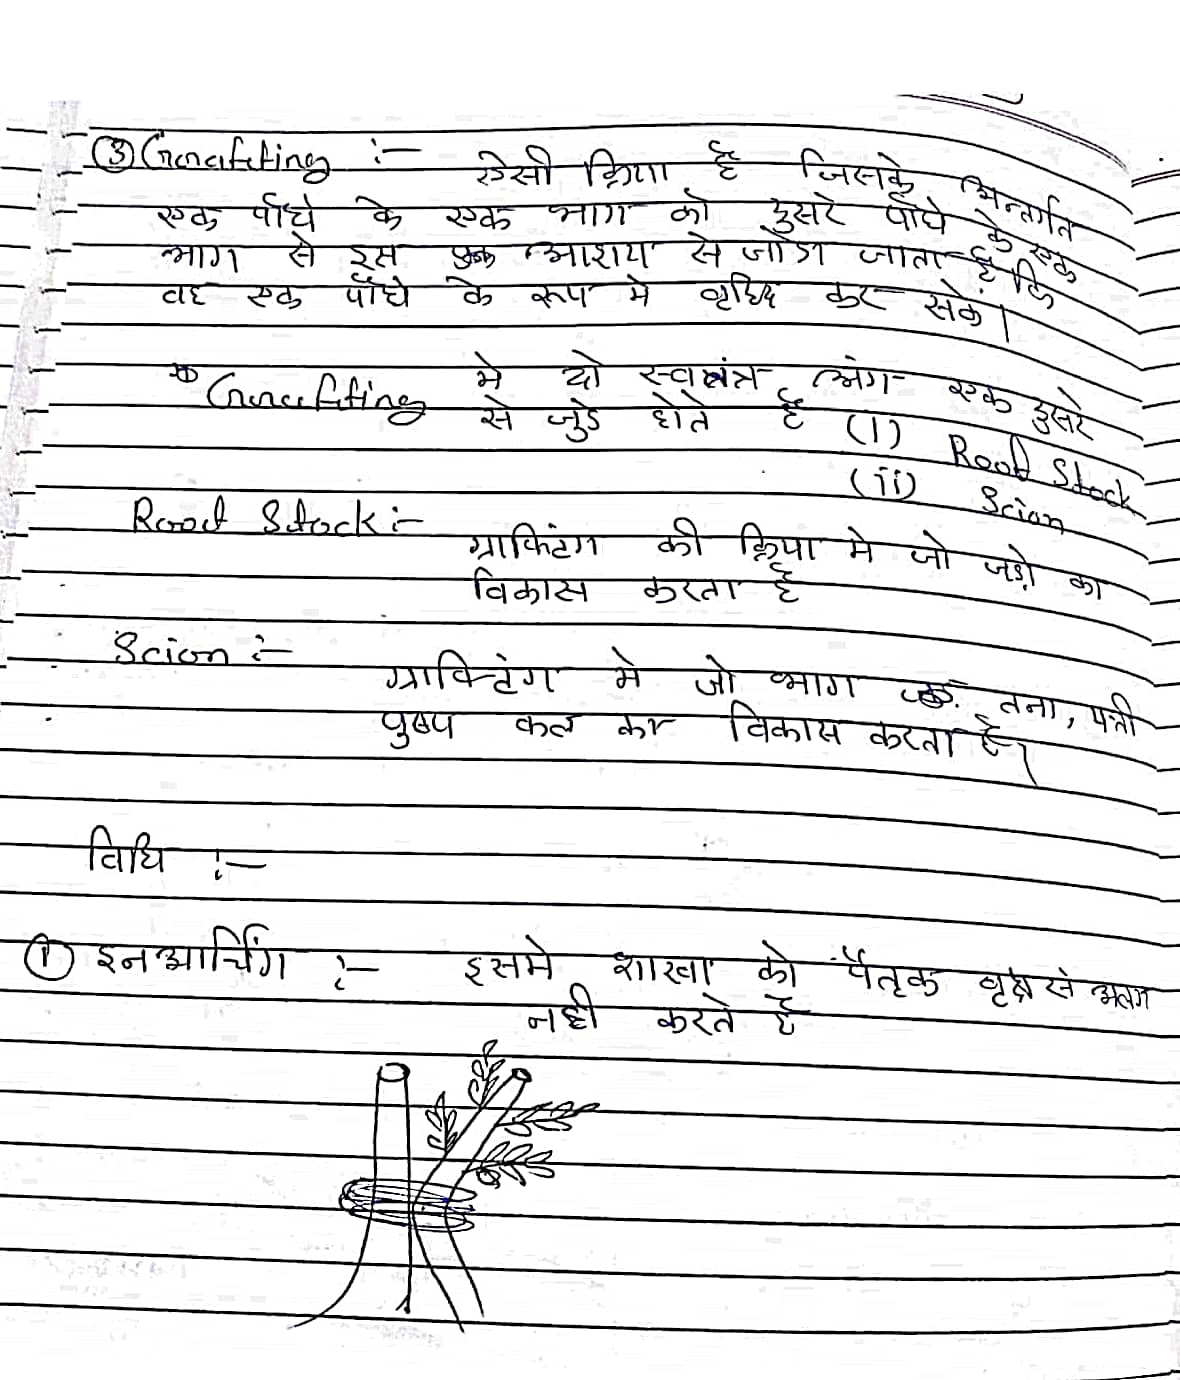 ③ Grafting :- ऐसी क्रिया है जिसके अन्तर्गत
एक पौधे के एक भाग को दुसरे पौधे के एक
भाग से इस आशय से जोडा जाता है कि
वह एक पौधे के रूप मे वृध्दि कर सकें।
* Grafting मे दो स्वतंत्र अंग एक दुसरे
से जुडे होते है (i) Root Stock
(ii) Scion
Root Stock :-
ग्राफ्टिंग की क्रिया मे जो जड़ो का
विकास करता है
Scion :-
ग्राफ्टिंग मे जो भाग तना, पत्ती
पुष्प फल का विकास करता है।
विधि :-
① इनआर्चिंग :- इसमे शाखा को पैतृक वृक्ष से अलग
नही करते है